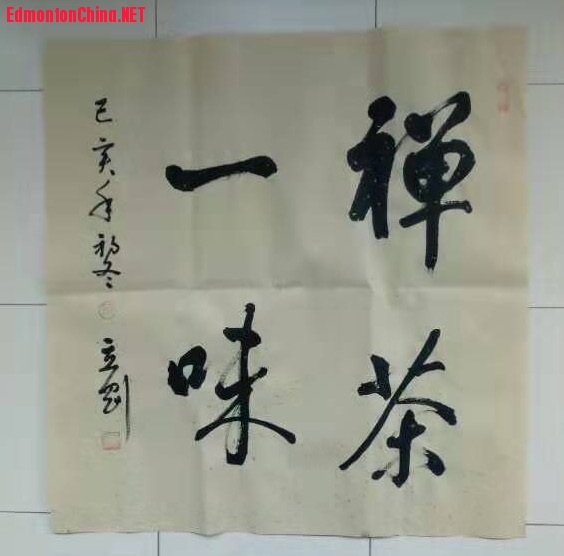 EdmontonChina.NET
禅茶
一味
己亥年初冬
立刚